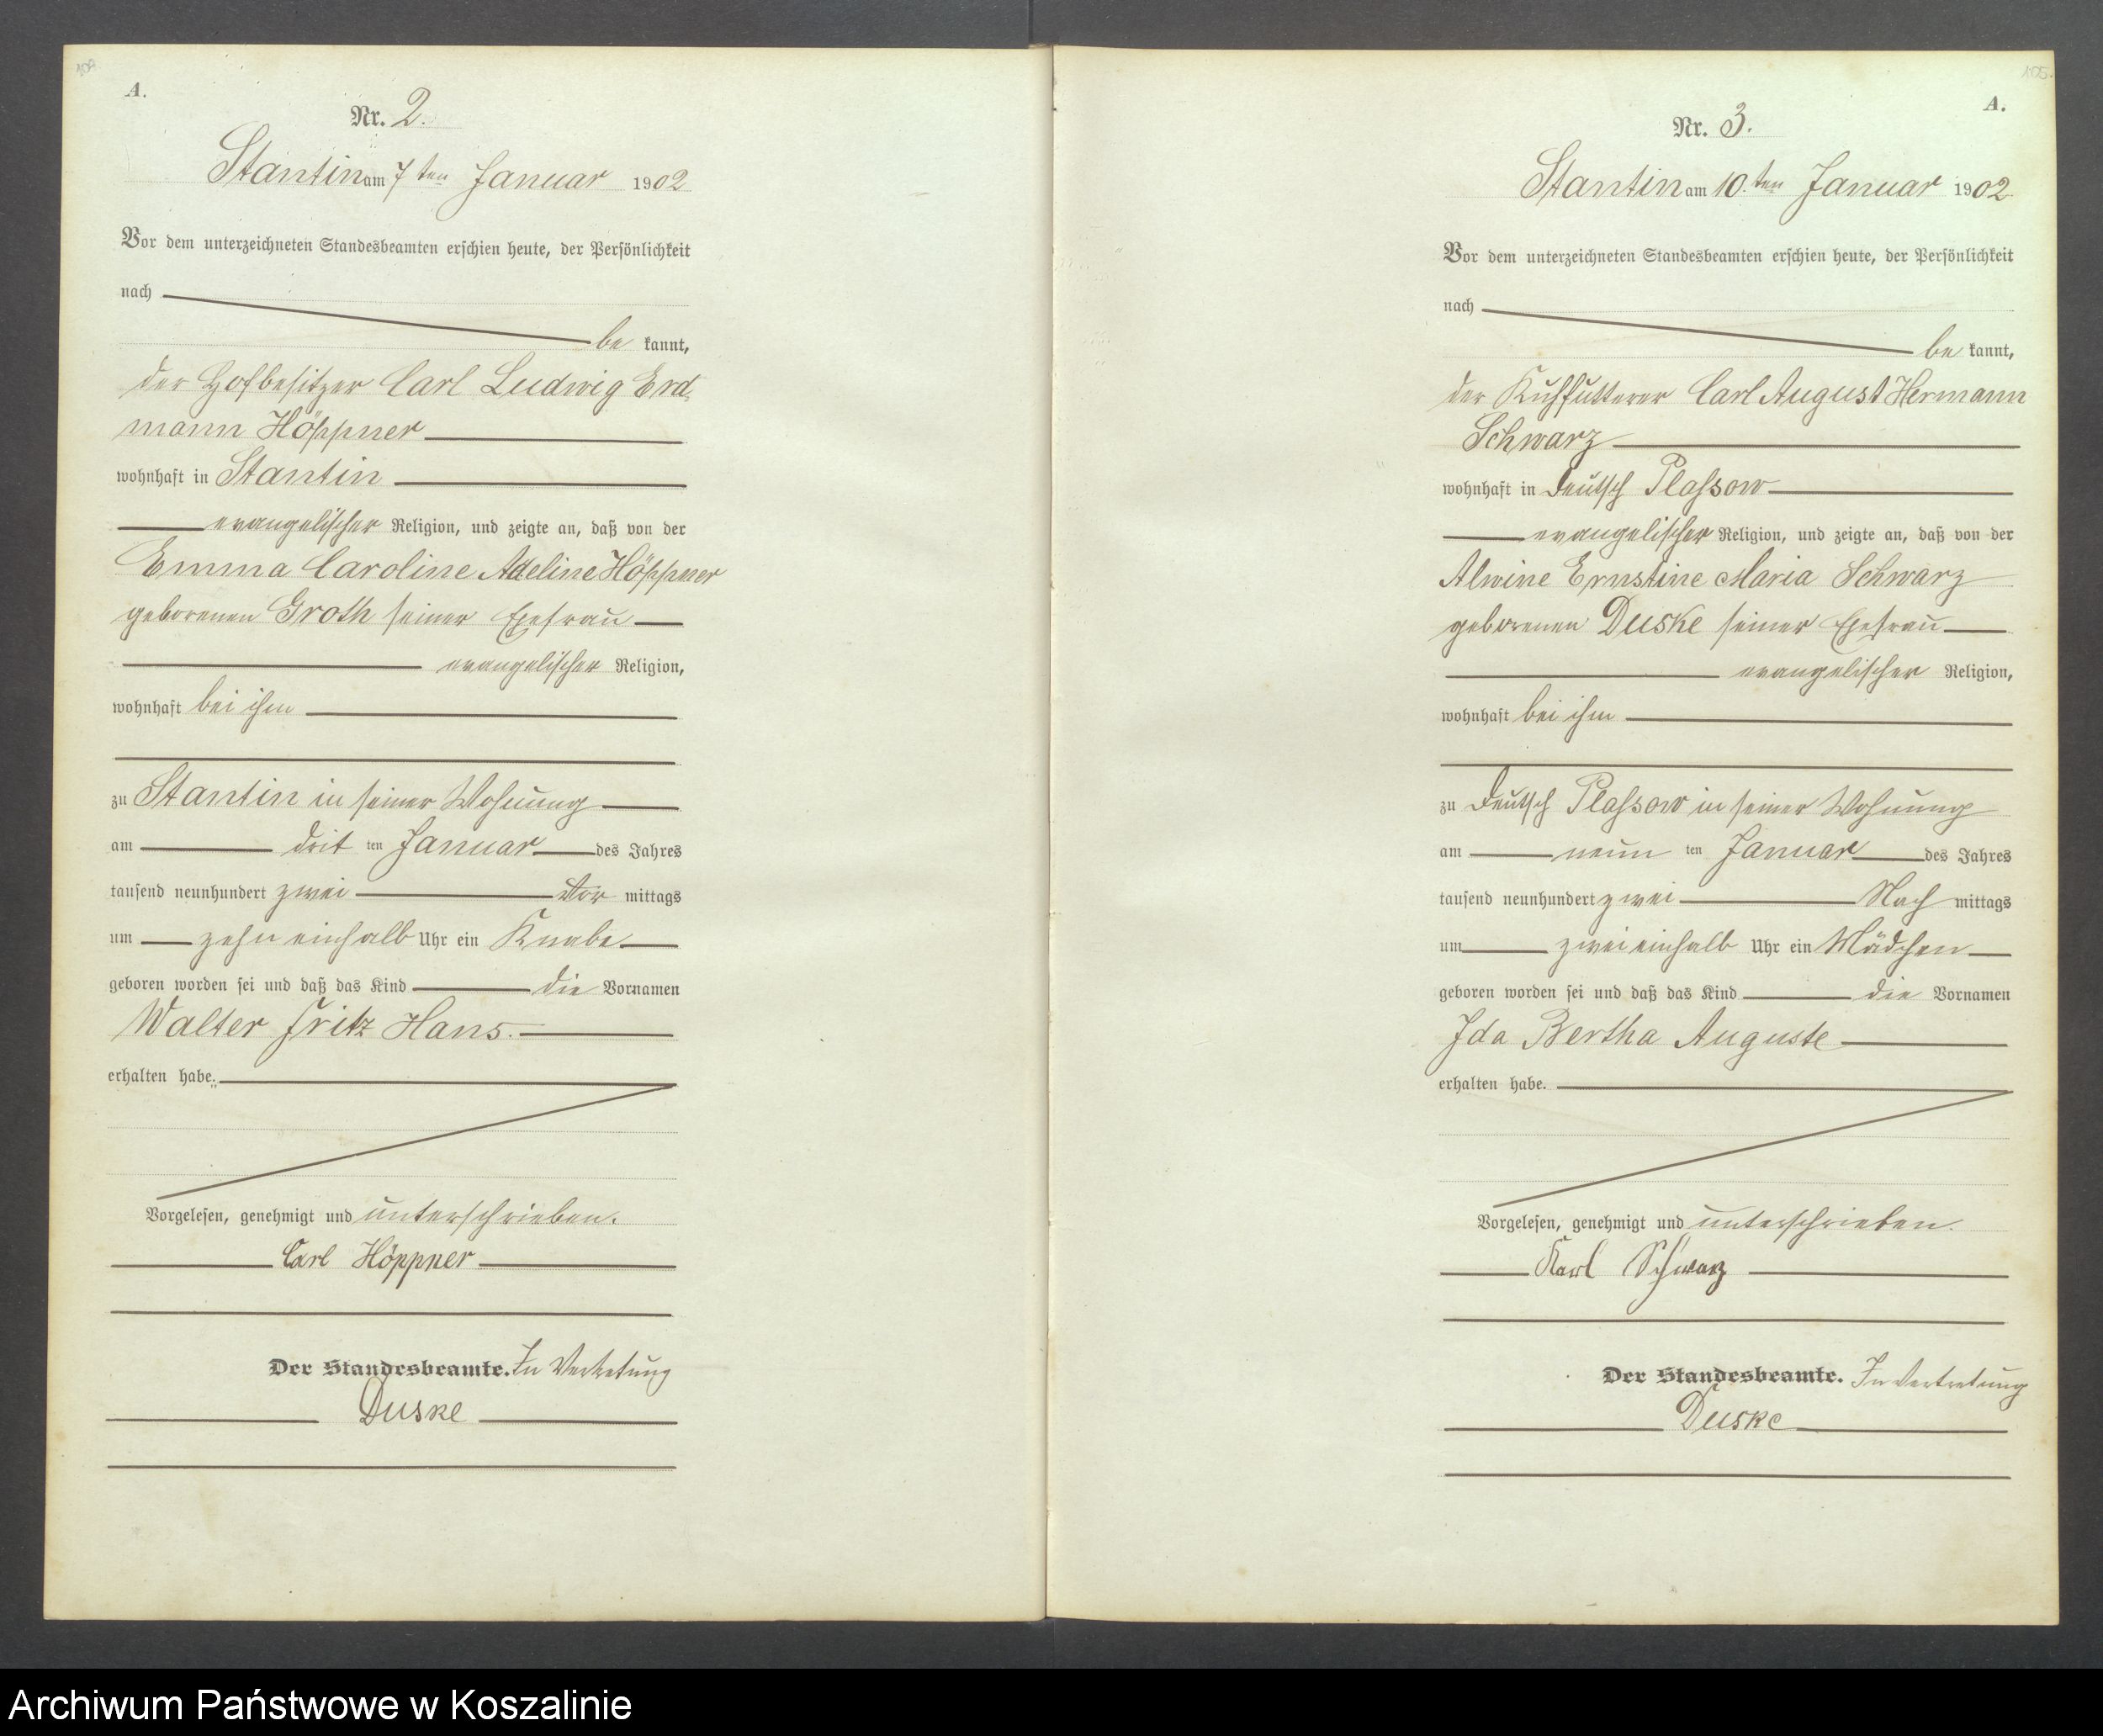 A.
Nr. 2.
Stantin am 7ten Januar 1902
Vor dem unterzeichneten Standesbeamten erschien heute, der Persönlichkeit
nach
be kannt,
der Hofbesitzer Carl Ludwig Erd-
mann Höppner
wohnhaft in Stantin
evangelischer Religion, und zeigte an, daß von der
Emma Caroline Adeline Höppner
geborenen Groth seiner Ehefrau
evangelischer Religion,
wohnhaft bei ihm
zu Stantin in seiner Wohnung
am drit ten Januar des Jahres
tausend neunhundert zwei Vor mittags
um zehn einhalb Uhr ein Knabe
geboren worden sei und daß das Kind die Vornamen
Walter Fritz Hans.
erhalten habe.
Vorgelesen, genehmigt und unterschrieben.
Carl Höppner
Der Standesbeamte. In Vertretung
Duske
105.
A.
Nr. 3.
Stantin am 10.ten Januar 1902
Vor dem unterzeichneten Standesbeamten erschien heute, der Persönlichkeit
nach
be kannt,
der Kuhfutterer Carl August Hermann
Schwarz
wohnhaft in Deutsch Plassow
evangelischer Religion, und zeigte an, daß von der
Alwine Ernstine Maria Schwarz
geborenen Duske seiner Ehefrau
evangelischer Religion,
wohnhaft bei ihm
zu Deutsch Plassow in seiner Wohnung
am neun ten Januar des Jahres
tausend neunhundert zwei Nach mittags
um zwei einhalb Uhr ein Mädchen
geboren worden sei und daß das Kind die Vornamen
Ida Bertha Auguste
erhalten habe.
Vorgelesen, genehmigt und unterschrieben.
Karl Schwarz
Der Standesbeamte. In Vertretung
Duske
Archiwum Państwowe w Koszalinie